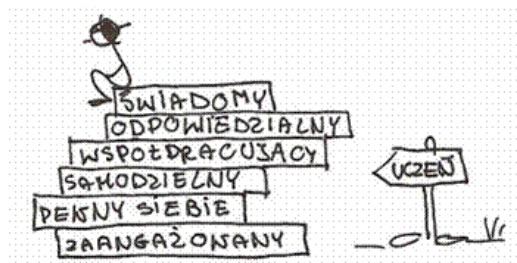 ŚWIADOMY
ODPOWIEDZIALNY
WSPÓŁPRACUJĄCY
SAMODZIELNY
PEWNY SIEBIE
ZAANGAŻOWANY
UCZEŃ